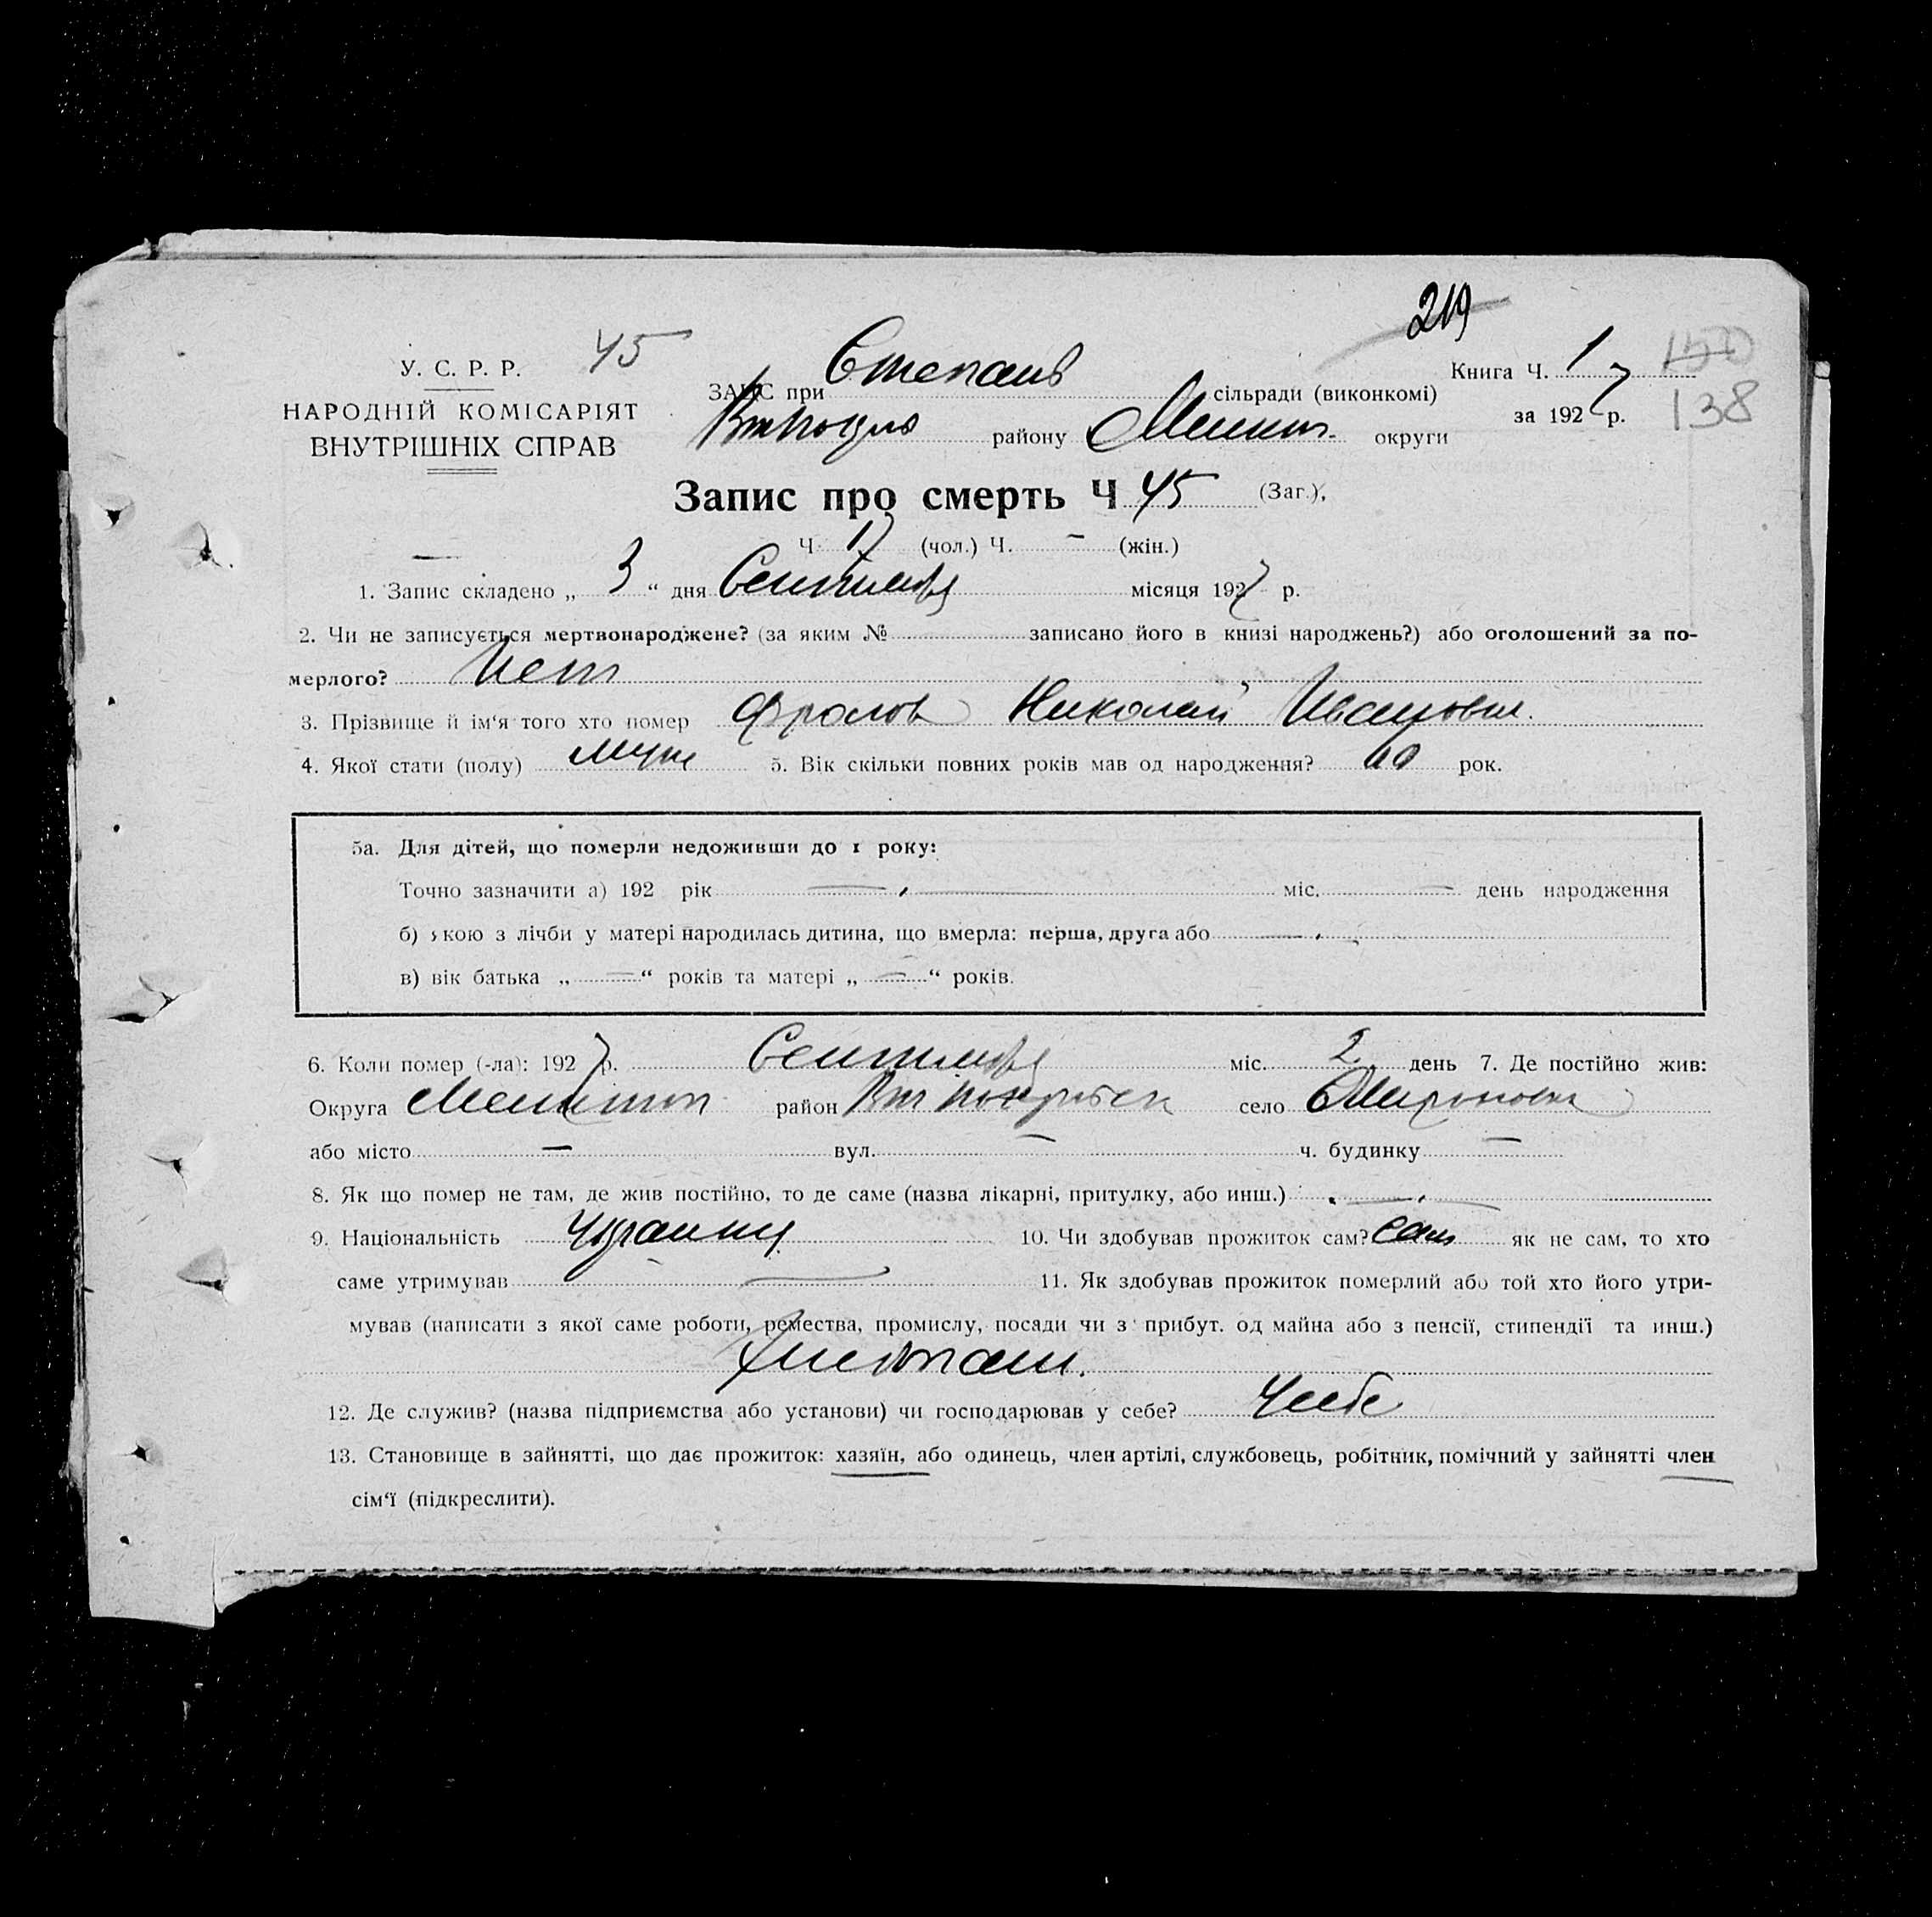 219
У. С. Р. Р. 45 ЗАГС при Степанів сільради (виконкомі) Книга Ч. 1 150
НАРОДНІЙ КОМІСАРІЯТ району Мелит. округи за 1927 р. 138
ВНУТРІШНІХ СПРАВ
Запис про смерть Ч 45 (Заг.),
Ч. 17 (чол.) Ч. - (жін.)
1. Запис складено „ 3 “ дня Сентября місяця 1927 р.
2. Чи не записується мертвонароджене? (за яким № записано його в книзі народжень?) або оголошений за по-
мерлого? Нет
3. Прізвище й ім'я того хто помер Фролов Николай Иванович.
4. Якої стати (полу) муж 5. Вік скільки повних років мав од народження? 60 рок.
5а. Для дітей, що померли недоживши до 1 року:
Точно зазначити а) 192 рік — міс. — день народження
б) якою з лічби у матері народилась дитина, що вмерла: перша, друга або —
в) вік батька „ — “ років та матері „ — “ років.
6. Коли помер (-ла): 1927 р. Сентября міс. 2 день 7. Де постійно жив:
Округа Мелитоп район село Мироновка
або місто — вул. — ч. будинку —
8. Як що помер не там, де жив постійно, то де саме (назва лікарні, притулку, або инш.) —
9. Національність Украинец 10. Чи здобував прожиток сам? Сам як не сам, то хто
саме утримував — 11. Як здобував прожиток померлий або той хто його утри-
мував (написати з якої саме роботи, ремества, промислу, посади чи з прибут. од майна або з пенсії, стипендії та инш.)
Хлебопаш.
12. Де служив? (назва підприємства або установи) чи господарював у себе? У себе
13. Становище в зайнятті, що дає прожиток: хазяїн, або одинець, член артілі, службовець, робітник, помічний у зайнятті член
сім'ї (підкреслити).